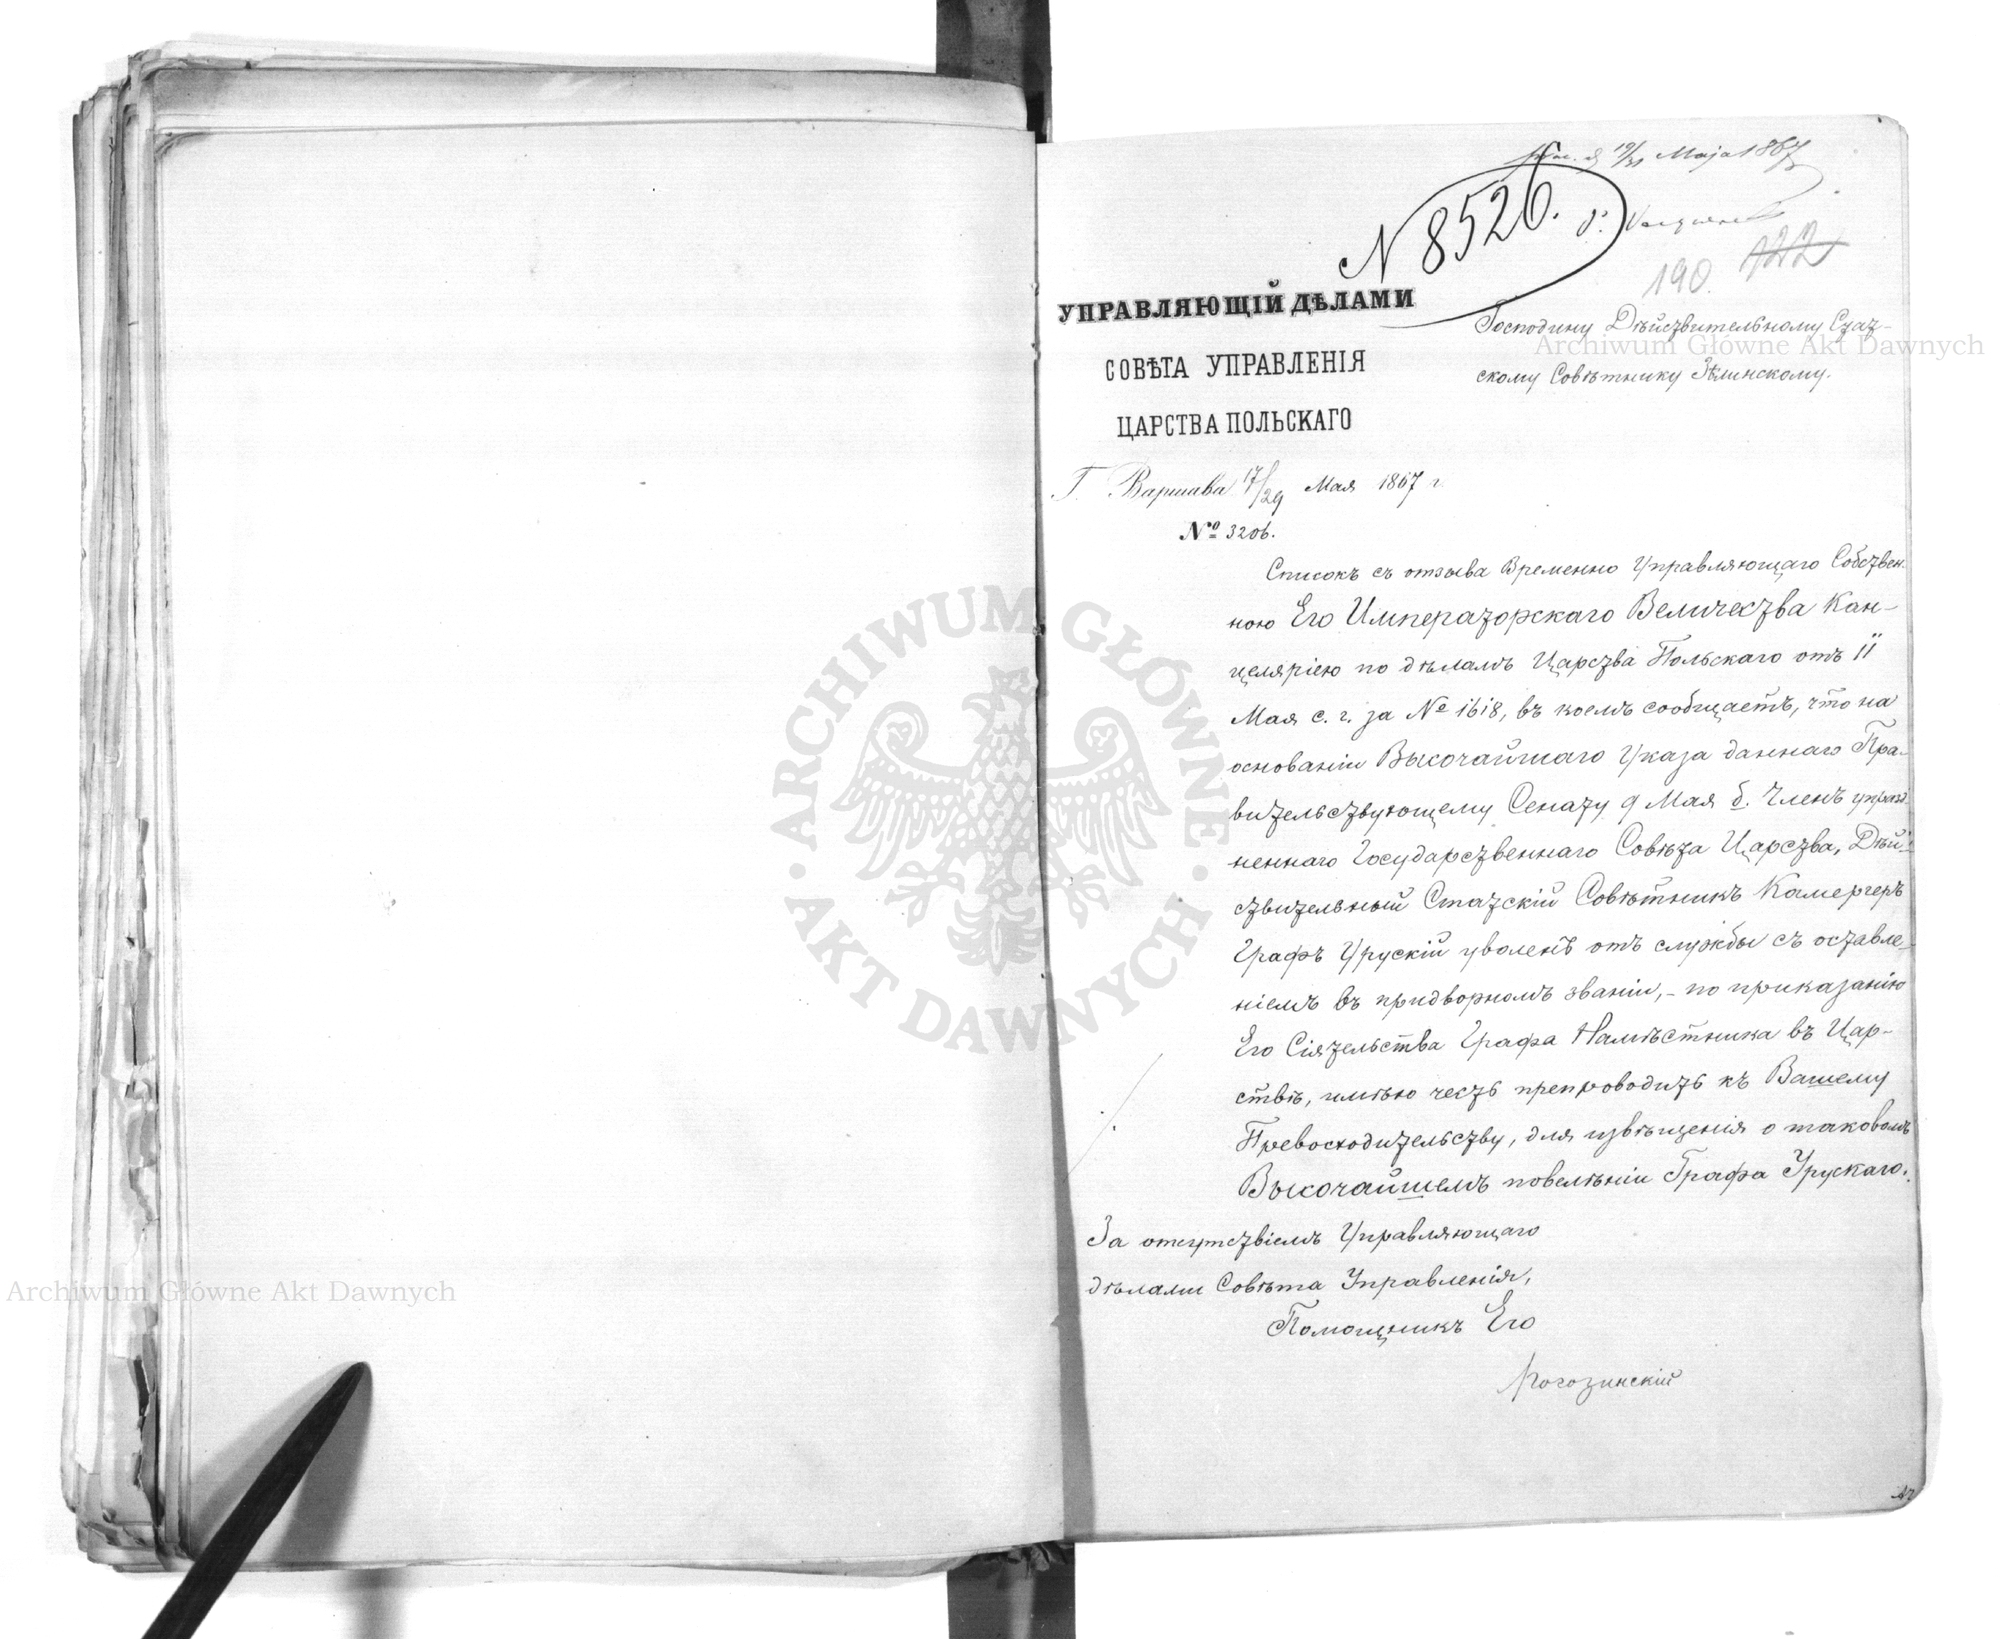 19/31 Maja 1867
N 8526.
190. 122
УПРАВЛЯЮЩІЙ ДѢЛАМИ
СОВѢТА УПРАВЛЕНІЯ
ЦАРСТВА ПОЛЬСКАГО
Господину Дѣйствительному Стат-
скому Совѣтнику Зѣлинскому.
Г. Варшава 17/29 Мая 1867 г.
№ 3206.
Списокъ съ отзыва Временно Управляющаго Собствен-
ною Его Императорскаго Величества Кан-
целяріею по дѣламъ Царства Польскаго отъ 11
Мая с. г. за № 1618, въ коемъ сообщаетъ, что на
основаніи Высочайшаго Указа даннаго Пра-
вительствующему Сенату 9 Мая б. Членъ упразд-
неннаго Государственнаго Совѣта Царства, Дѣй-
ствительный Статскій Совѣтникъ Камергеръ
Графъ Урускій уволенъ отъ службы съ оставле-
ніемъ въ придворномъ званіи, - по приказанію
Его Сіятельства Графа Намѣстника въ Цар-
ствѣ, имѣю честь препроводить къ Вашему
Превосходительству, для извѣщенія о таковомъ
Высочайшемъ повелѣніи Графа Урускаго.
За отсутствіемъ Управляющаго
дѣлами Совѣта Управленія,
Помощникъ Его
Рогозинскій
Archiwum Główne Akt Dawnych
Archiwum Główne Akt Dawnych
ARCHIWUM GŁÓWNE
AKT DAWNYCH